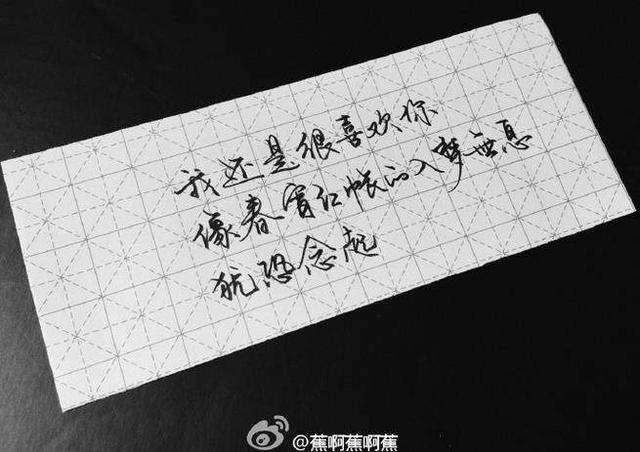 我还是很喜欢你
像春宵红帐的入梦无息
犹恐念起
@蕉啊蕉啊蕉